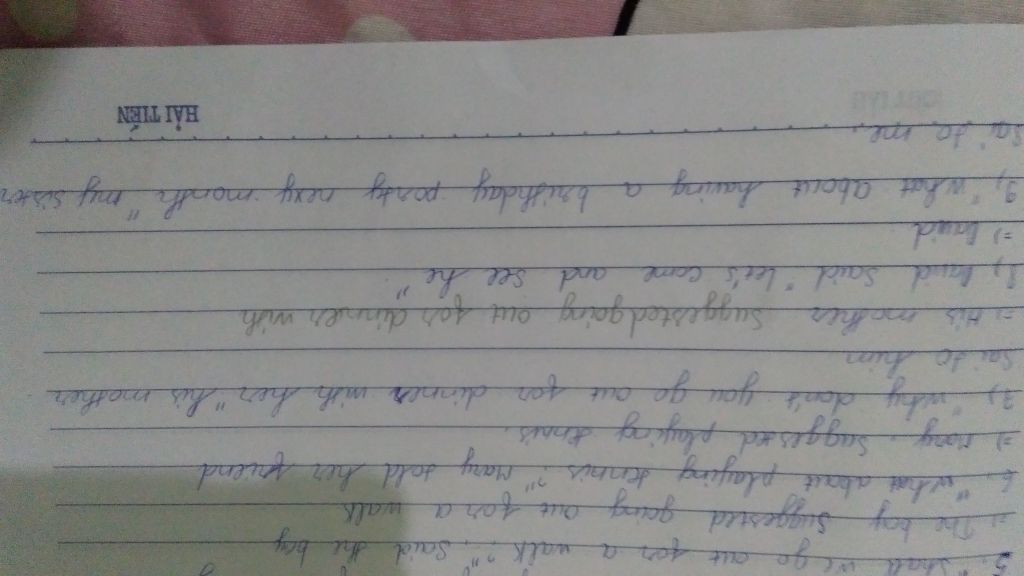 5. "Shall we go out for a walk?", Said the boy
=> The boy suggested going out for a walk
6. "What about playing tennis?" Mary told her friend
=> Mary. suggested playing tennis.
7, "why don't you go out for dinner with her" his mother
Sai to him
=> His mother suggested going out for dinner with
8, David said "Let's come and see he"
=> David
9, "what about having a brithday party nexy month" my sister
Sai to me.
HẢI TIẾN